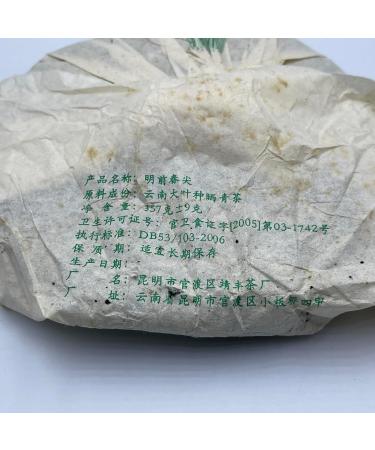 产品名称: 明前春尖
原料成份: 云南大叶种晒青茶
净 含 量: 357克±9克
卫生许可证号: 官卫食证字[2005]第03-1742号
执行标准: DB53/103-2006
保 质 期: 适宜长期保存
生产日期:
厂 名: 昆明市官渡区靖丰茶厂
厂 址: 云南省昆明市官渡区小板桥四甲